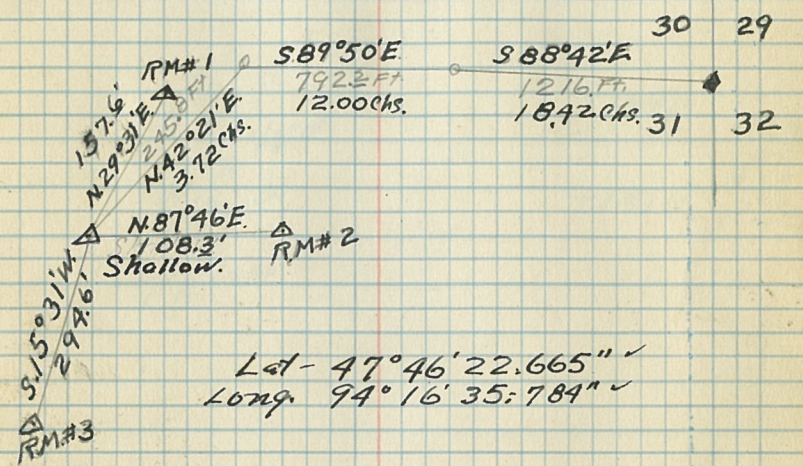 30 29
S.89°50'E.
792.2 Ft.
12.00 Chs.
S 88°42'E
1216. Ft.
18.42 Chs.
31 32
RM#1
157.6'
N.29°31'E.
245.8 Ft
N.42°21'E.
3.72 Chs.
N.87°46'E.
108.3'
Shallow.
R.M# 2
S.15°31'W.
294.6'
R.M.#3
Lat - 47°46' 22.665" ✓
Long. 94° 16' 35.784" ✓